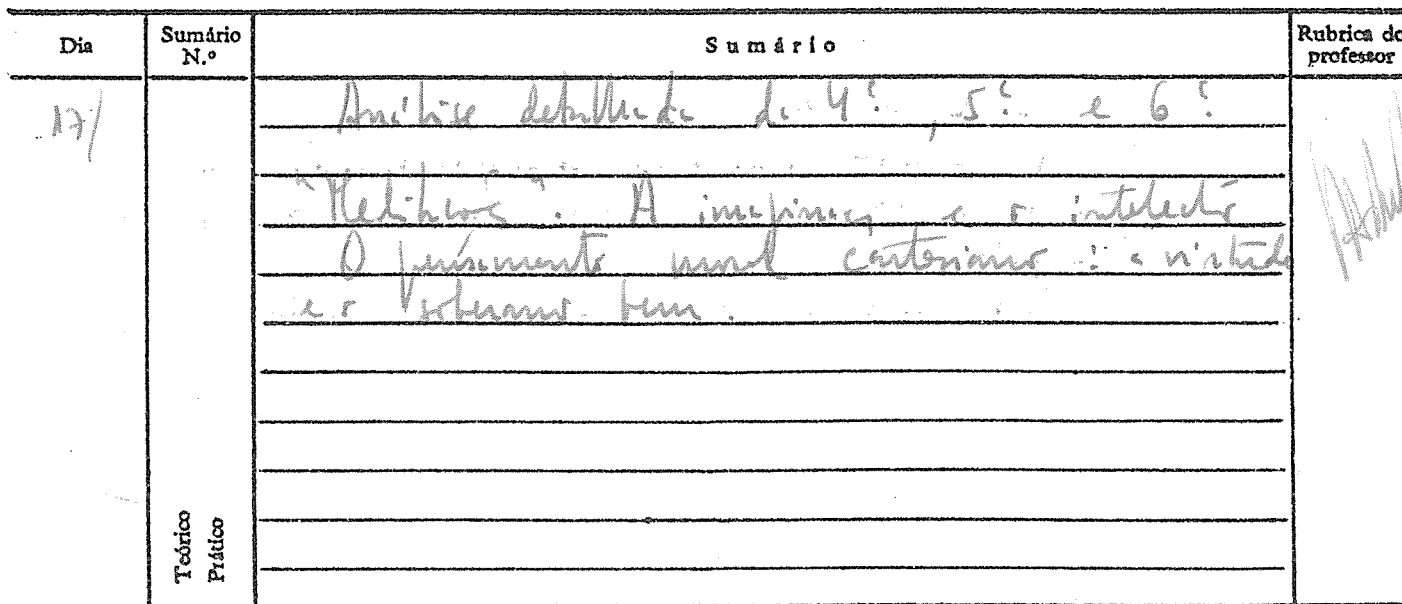 Dia
Sumário N.º
Sumário
Rubrica do professor
17/
Análise detalhada da 4ª, 5ª e 6ª
"Meditações". A imaginação e o intelecto
O pensamento moral cartesiano : a virtude
e o soberano bem.
Teórico
Prático